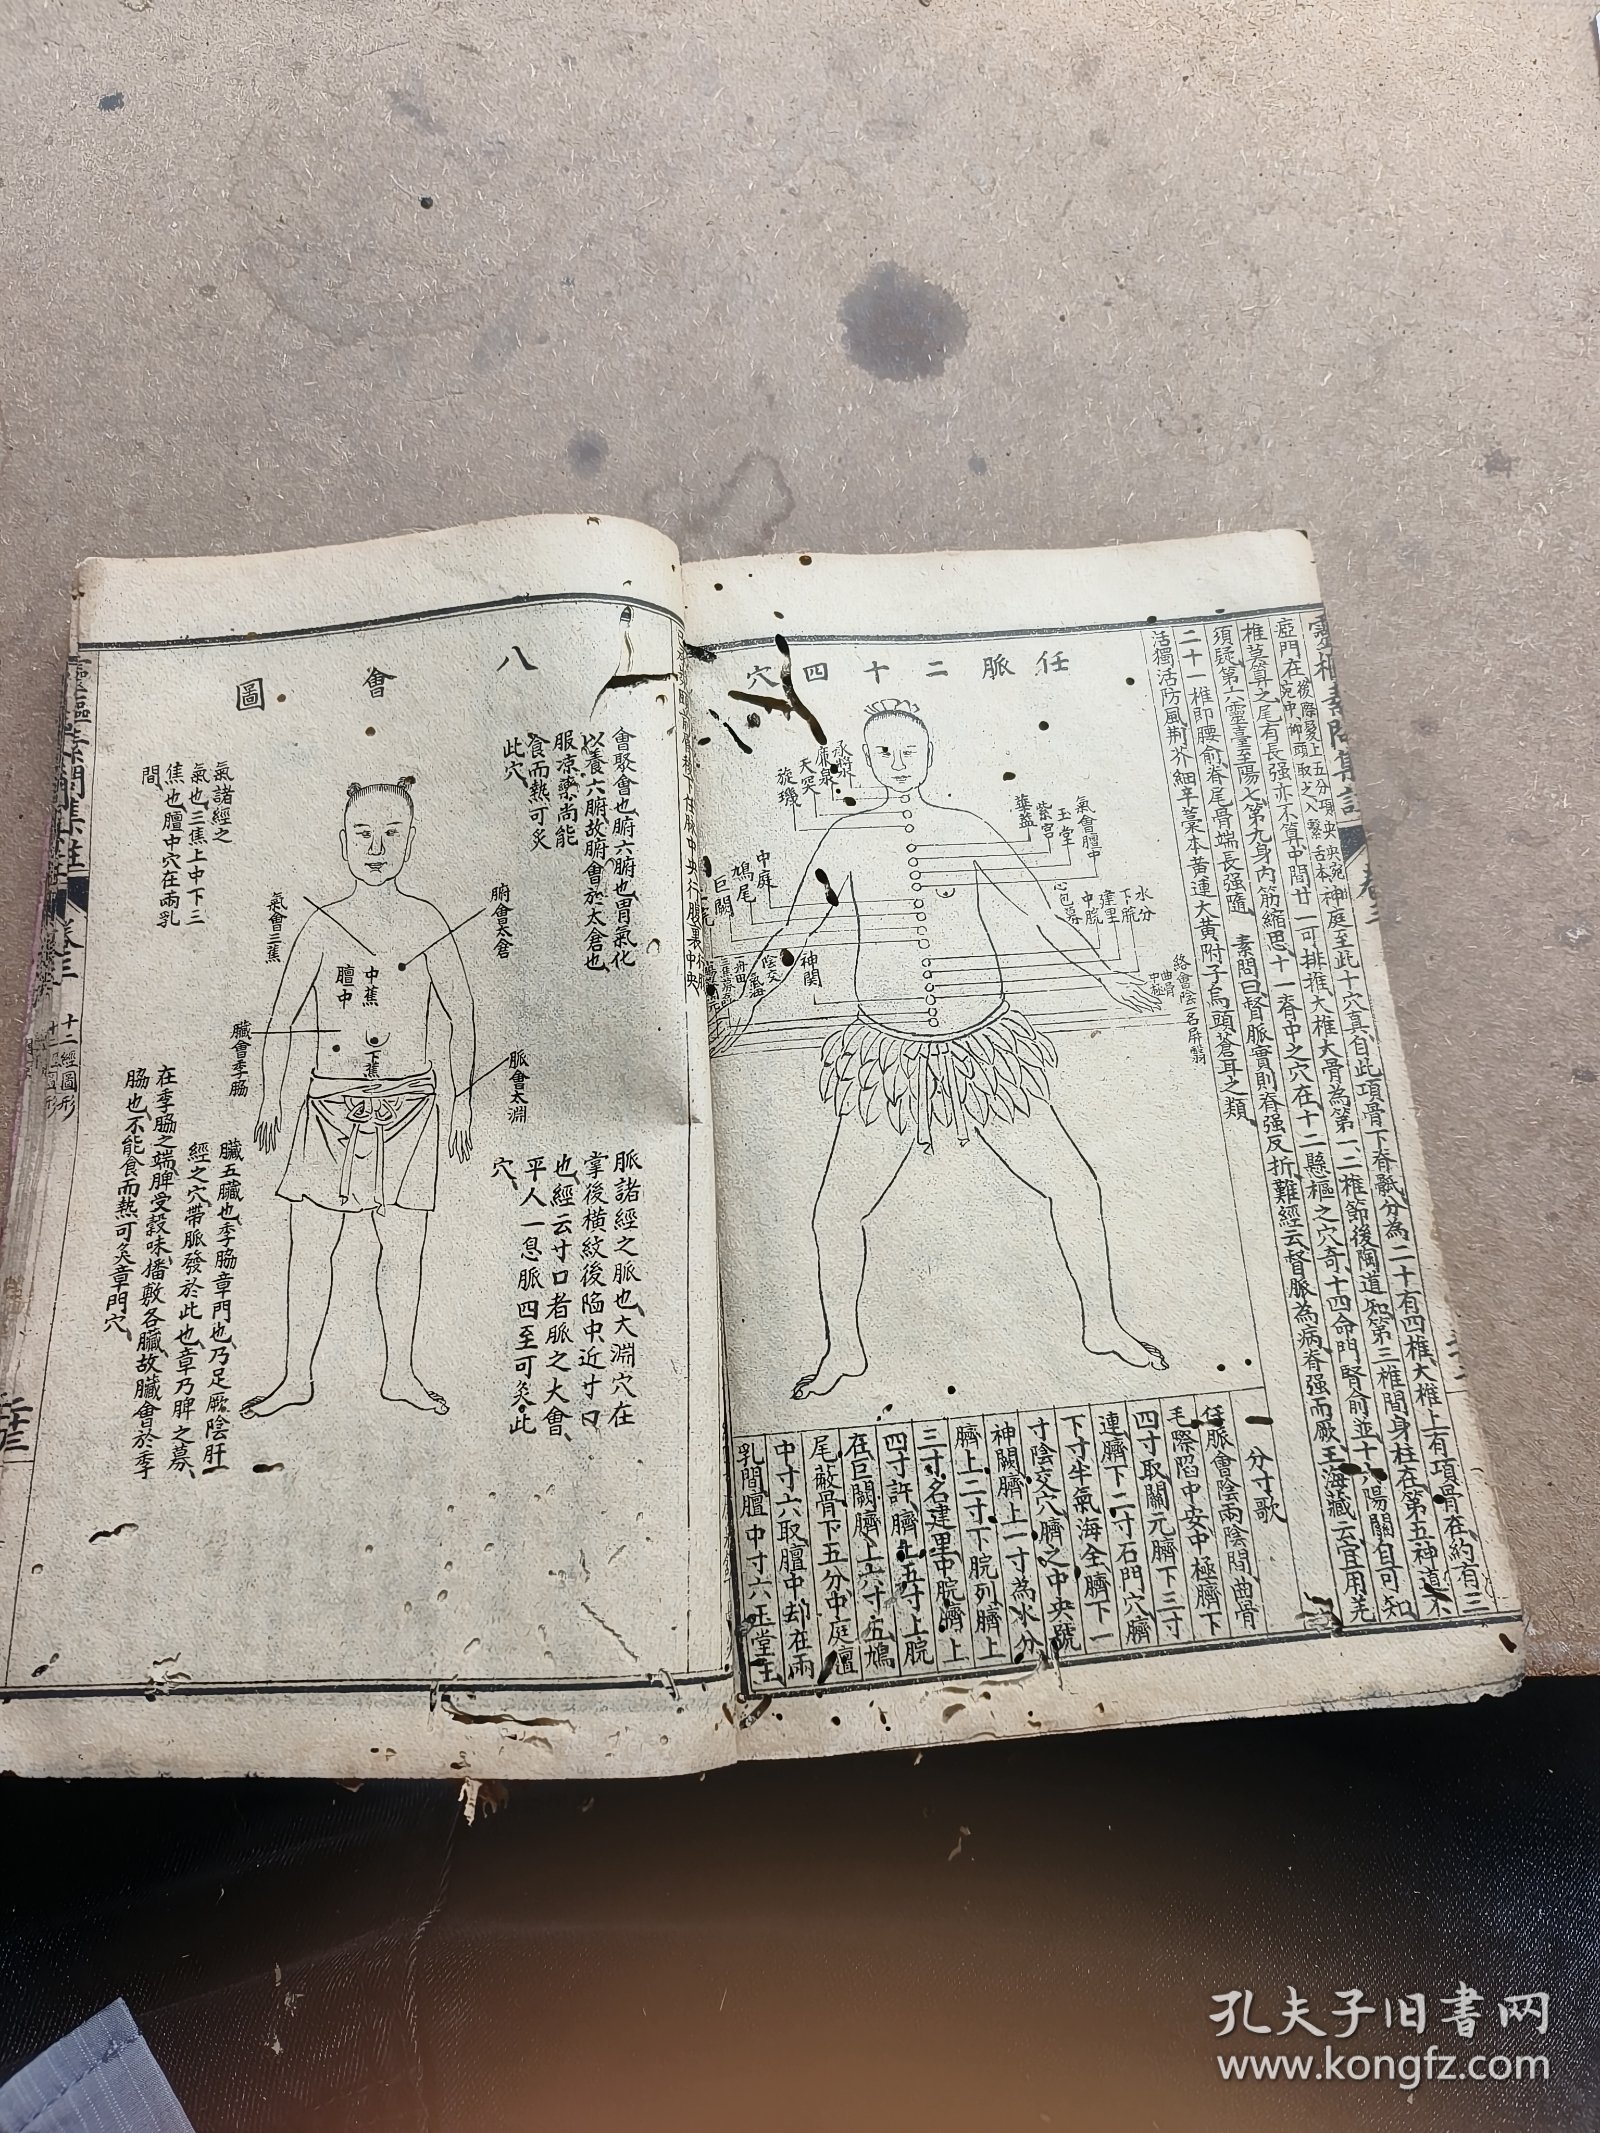 瘂門在
神庭至此十穴真自此項骨下脊骶分為二十有四椎大椎上有項骨在約有三
椎莫算之尾有長强亦不算中間廿一可排推大椎大骨為第一二椎節後陶道知第三椎間身柱在第五神道不
須疑第六靈臺至陽七第九身内筋縮思十一脊中之穴在十二懸樞之穴奇十四命門腎俞並十六陽關自可知
二十一椎即腰俞脊尾骨端長强隨
素問曰督脈實則脊强反折難經云督脈為病脊强而厥王海藏云宜用羌
活獨活防風荆芥細辛藁本黄連大黄附子烏頭蒼耳之類
任脈二十四穴
承漿
廉泉
天突
旋璣
華蓋
紫宮
玉堂
氣會膻中
中庭
鳩尾
巨闕
心包募
中脘
建里
下脘
水分
神闕
陰交
氣海
中極
曲骨
絡會陰一名屏翳
分寸歌
任脈會陰兩陰間曲骨
毛際陷中安中極臍下
四寸取關元臍下三寸
連臍下二寸石門穴臍
下寸半氣海全臍下一
寸陰交穴臍之中央號
神闕臍上一寸為水分
臍上二寸下脘列臍上
三寸名建里中脘臍上
四寸許臍上五寸上脘
在巨闕臍上六寸五鳩
尾蔽骨下五分中庭膻
中寸六取膻中却在兩
乳間膻中寸六玉堂主
八會圖
會聚會也腑六腑也胃氣化
以養六腑故腑會於太倉也
服凉藥尚能
食而熱可炙
此穴
氣諸經之
氣也三焦上中下三
焦也膻中穴在兩乳
間
氣會三蕉
腑會太倉
中蕉
膻中
下蕉
臟會季脇
脈會太淵
脈諸經之脈也大淵穴在
掌後横紋後陷中近寸口
也經云寸口者脈之大會
平人一息脈四至可炙此
穴
臟五臟也季脇章門也乃足厥陰肝
經之穴帶脈發於此也章乃脾之募
在季脇之端脾受穀味播敷各臟故臟會於季
脇也不能食而熱可炙章門穴
卷三
十二經圖形
二十三
孔夫子旧书网
www.kongfz.com